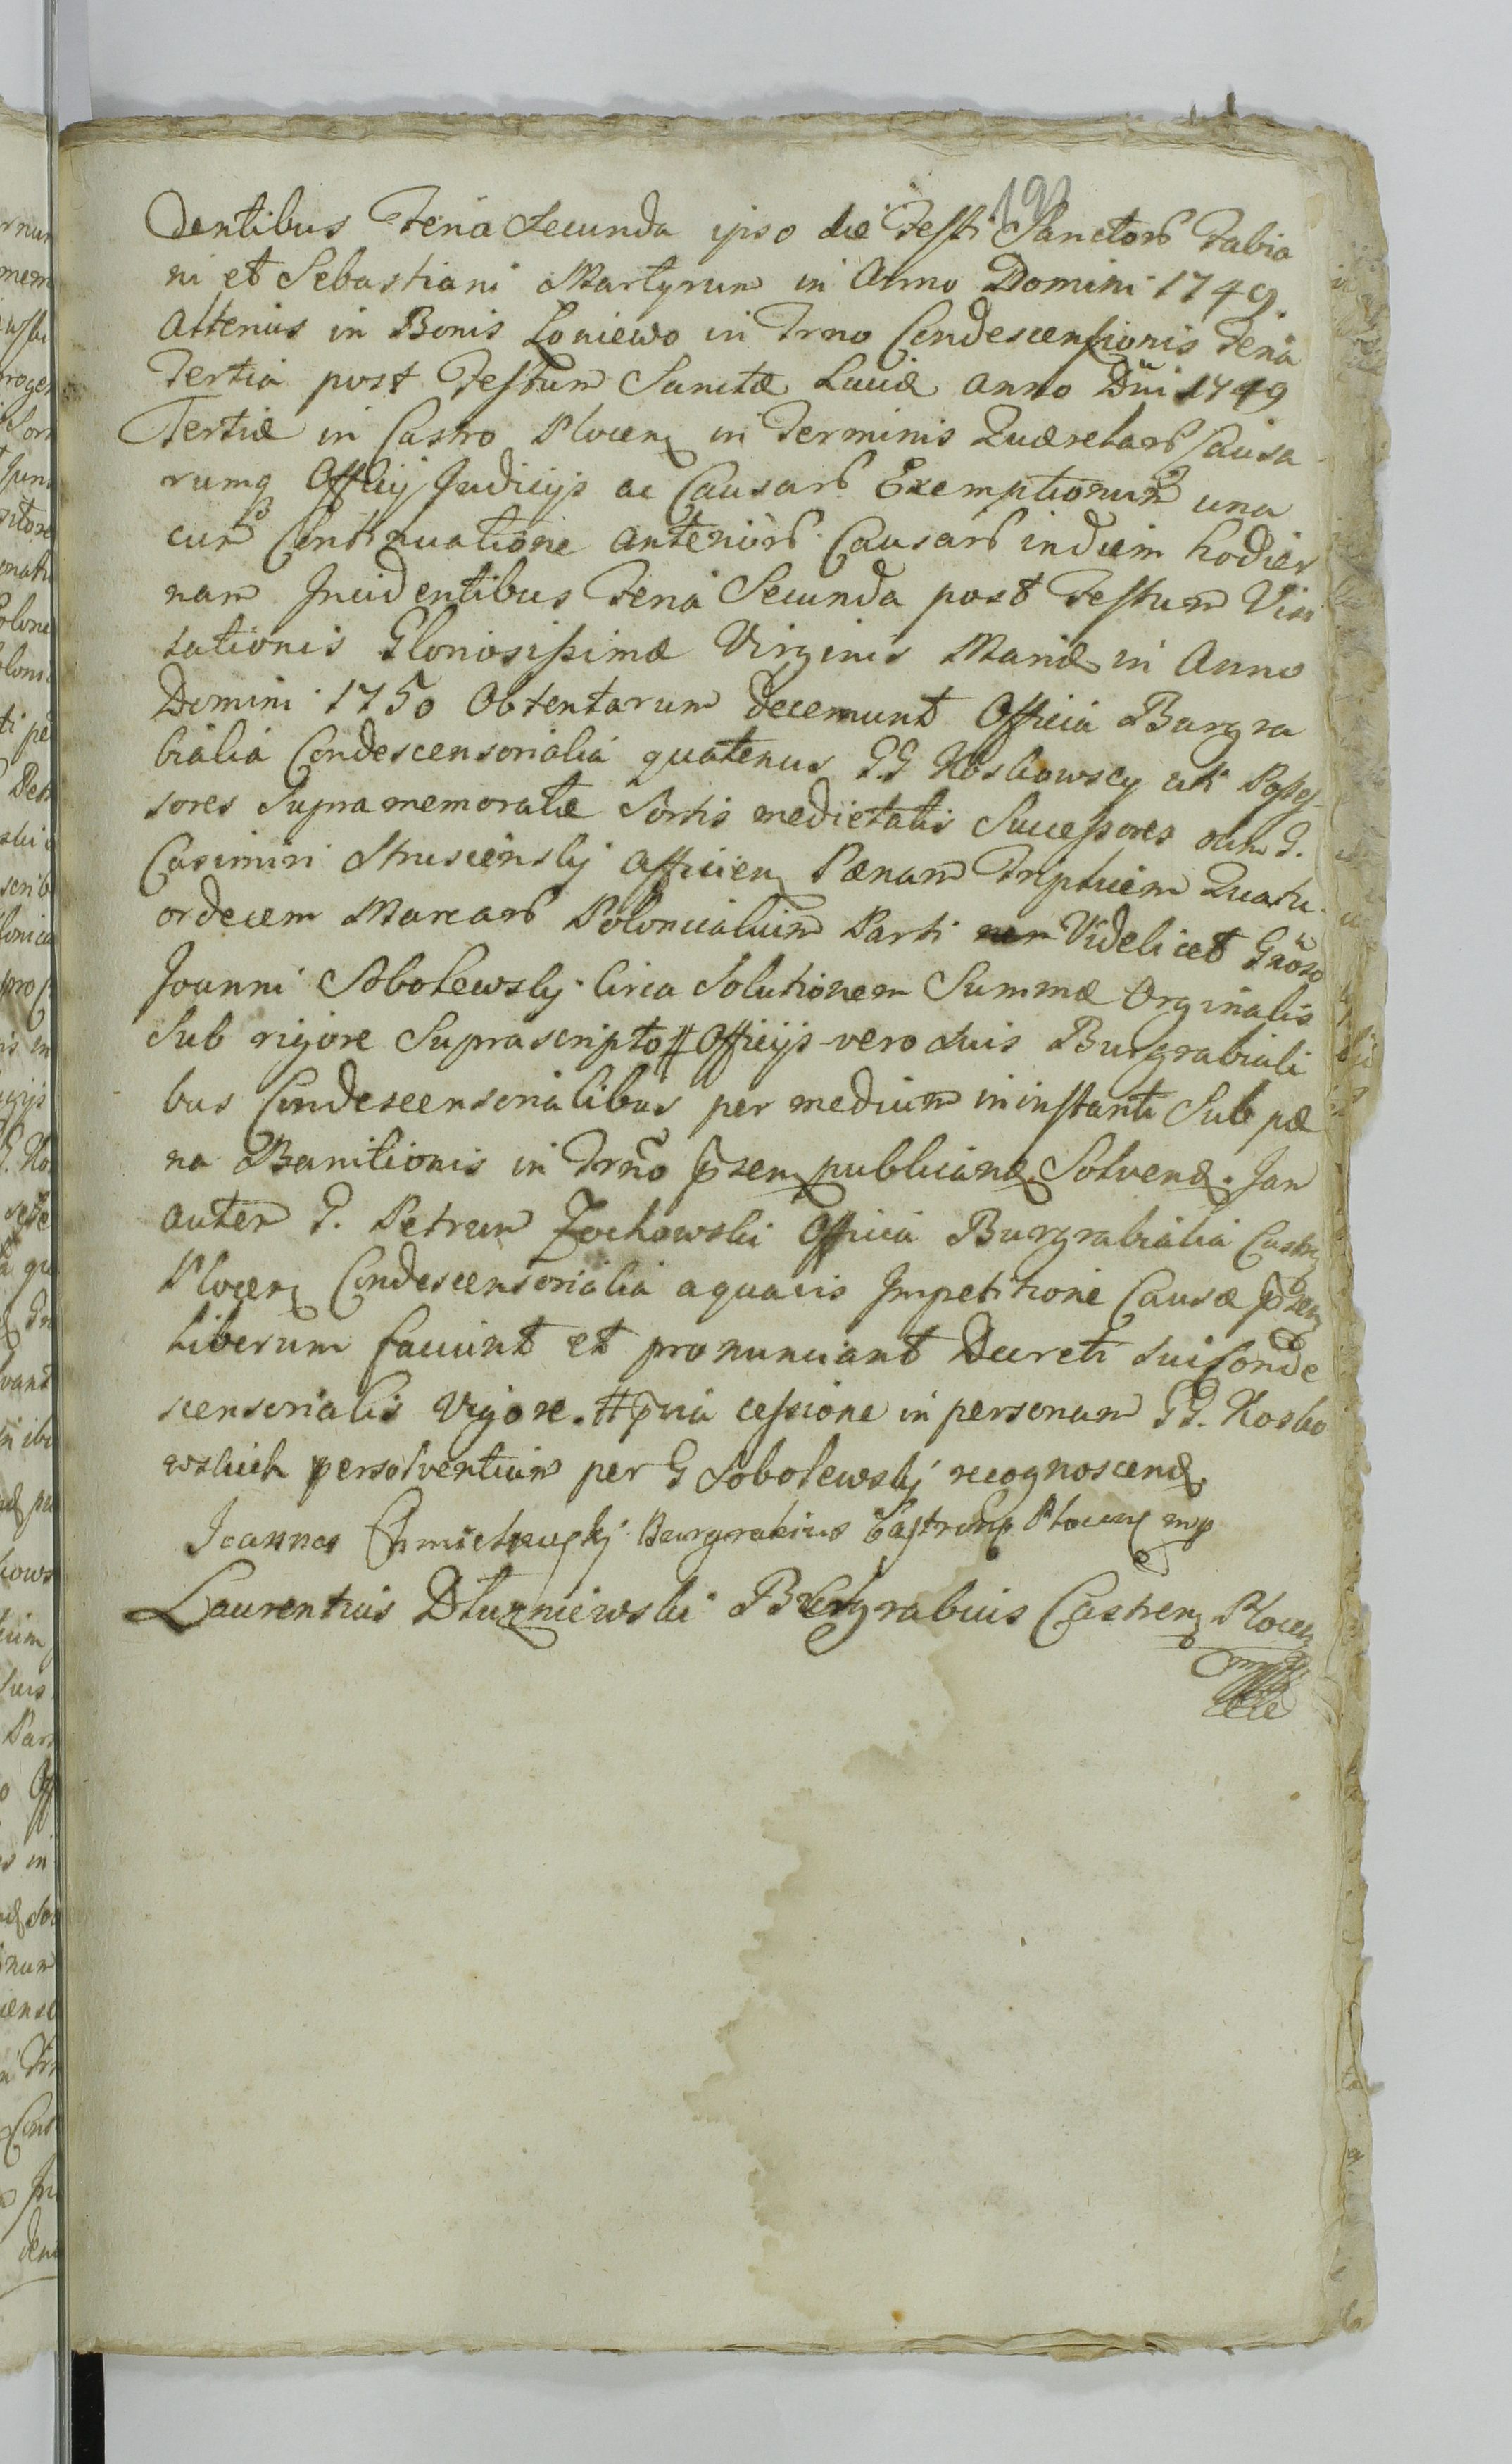 192
dentibus Feria Secunda ipso die Festi Sanctorƺ Fabia
ni et Sebastiani Martyrum in Anno Domini 1749.
Alterius in Bonis Łoniewo in Trno Condescensionis Feria
Tertia post Festum Sanctæ Luciæ Anno Dñi 1749
Tertiæ in Castro Plocen in Terminis Quærelarƺ Causa
rumq Officij Judicijs ac Causarƺ Exemptiorum una
cum Continuatione anteriorƺ Causarƺ in diem hodier
nam Incidentibus Feria Secunda post Festum Visi
tationis Gloriosissimæ Virginis Mariæ in Anno
Domini 1750 Obtentarum decernunt Officia Burgra
bialia Condescensorialia quatenus GG Koskowscy uti Posses
sores Supra memoratæ Sortis medietatis Successores olim G.
Casimiri Strusienskj afficien Pænam Triplicem Quatu
ordecem Marcarƺ Polonicalium Parti Videlicet Gnoso
Joanni Sobolewskj circa Solutionem Summæ Orginalis
Sub rigore Suprascripto # Officijs vero suis Burgrabiali
bus Condescensorialibus per medium in instanti Sub pæ
na Banitionis in Trno p̃sen publicand. Solvend. Jam
autem G. Petrum Zochowski Officia Burgrabialia Castri
Plocen Condescensorialia aquavis Impetitione Causæ p̃sen
liberum faciunt et pronunciant Decreti sui Conde
scensorialis vigore. # p̃via cessione in personam GG. Kosko
wskich persolventium per G Sobolewskj recognoscend.
Joannes Chmielewskj Burgrabius Castrens Plocens mp
Laurentius Dłużniewski Burgrabius Castren Plocen
mp